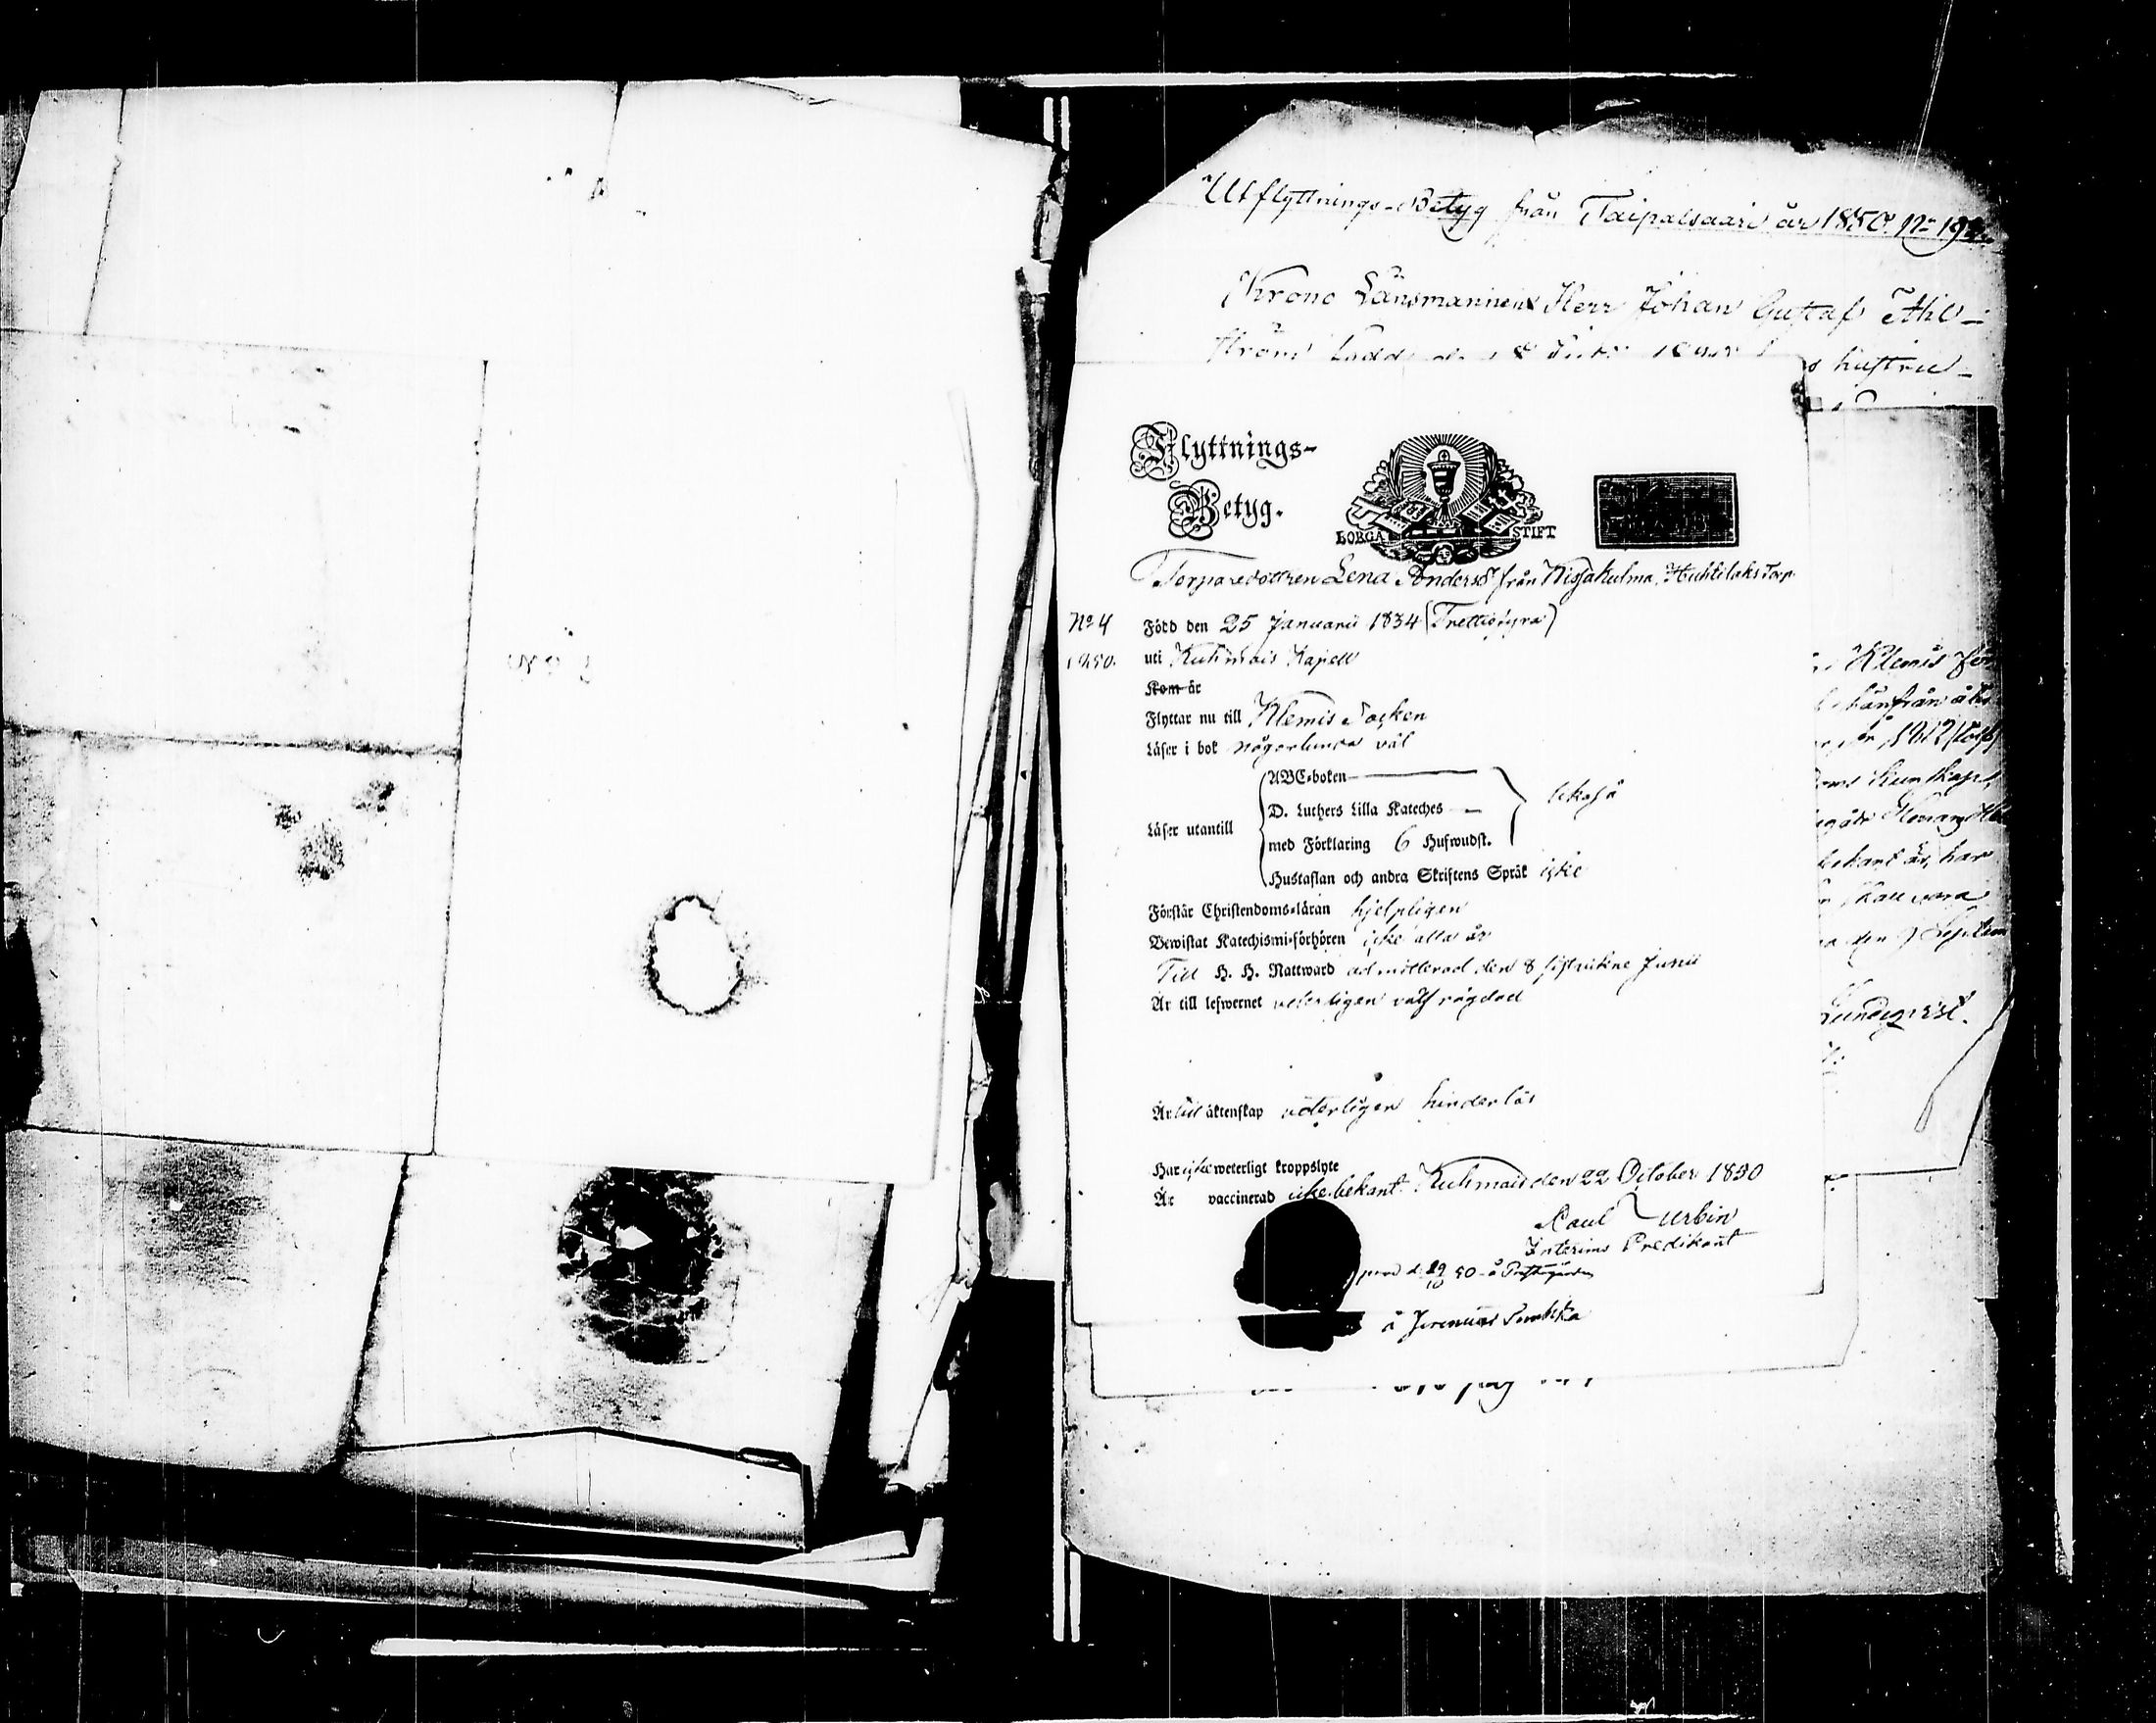 Utflyttnings-Betyg från Taipalsaari år 1850. No 19
Krono Länsmannen Herr Johan Gustaf Ahl-
ström född d. 8
s hustru
Flyttnings-
Betyg.
BORGÅ STIFT
Torparedottren Lena Andersd från Nisjakulma, Huhtilaks Torp.
No 4
1850.
Född den 25 Januarii 1834 (Trettiofyra)
uti Kuhmois Kapell
Kom år
Flyttar nu till Klemis Socken
Läser i bok någorlunda väl
Läser utantill
ABC-boken
D. Luthers Lilla Kateches
med Förklaring 6 Hufwudst.
likaså
Hustaflan och andra Skriftens Språk icke
Förstår Christendoms-läran hjelpligen
Bewistat Katechismi-förhören icke alla år
Till H. H. Nattward admitterad den 8 sistvikne Junii
Är till lefwernet veterligen välfrägdad
Är till äktenskap veterligen hinderlös
Har icke weterligt kroppslyte
Är vaccinerad icke bekant. Kuhmois den 22 October 1850
Paul Urbin
Interims Predikant
50 å Prestgården
å Jeremias
Klemis
härifrån
1842
kunskap,
bekant är, har
skall vara
den 9 Septem
Lundqvist.